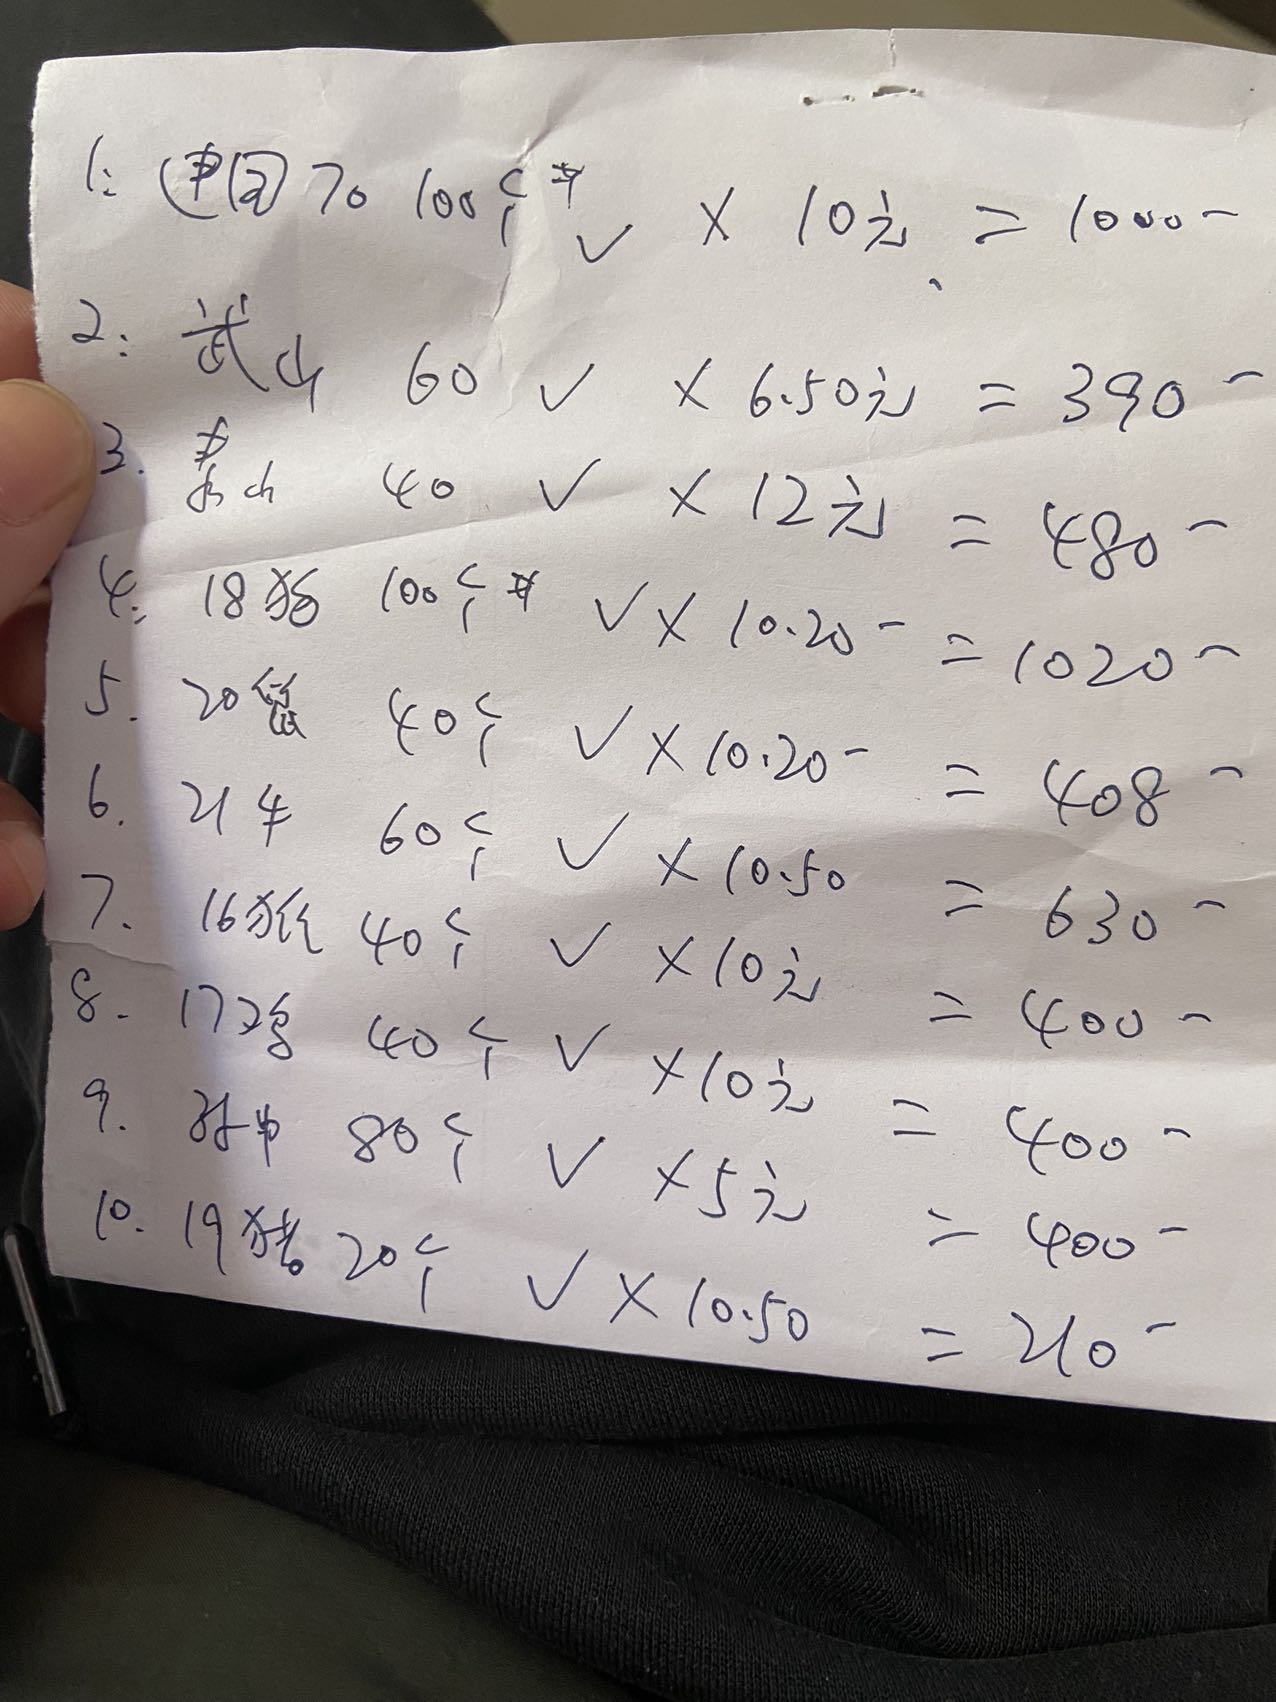 1: 建国70 100个 ✓ × 10元 = 1000-
2: 武山 60 ✓ × 6.50元 = 390-
3. 泰山 40 ✓ × 12元 = 480-
4: 18狗 100个 ✓ × 10.20- = 1020-
5. 20鼠 40个 ✓ × 10.20- = 408-
6. 21牛 60个 ✓ × 10.50 = 630-
7. 16猴 40个 ✓ × 10元 = 400-
8. 17鸡 40个 ✓ × 10元 = 400-
9. 80个 ✓ × 5元 = 400-
10. 19猪 20个 ✓ × 10.50 = 210-